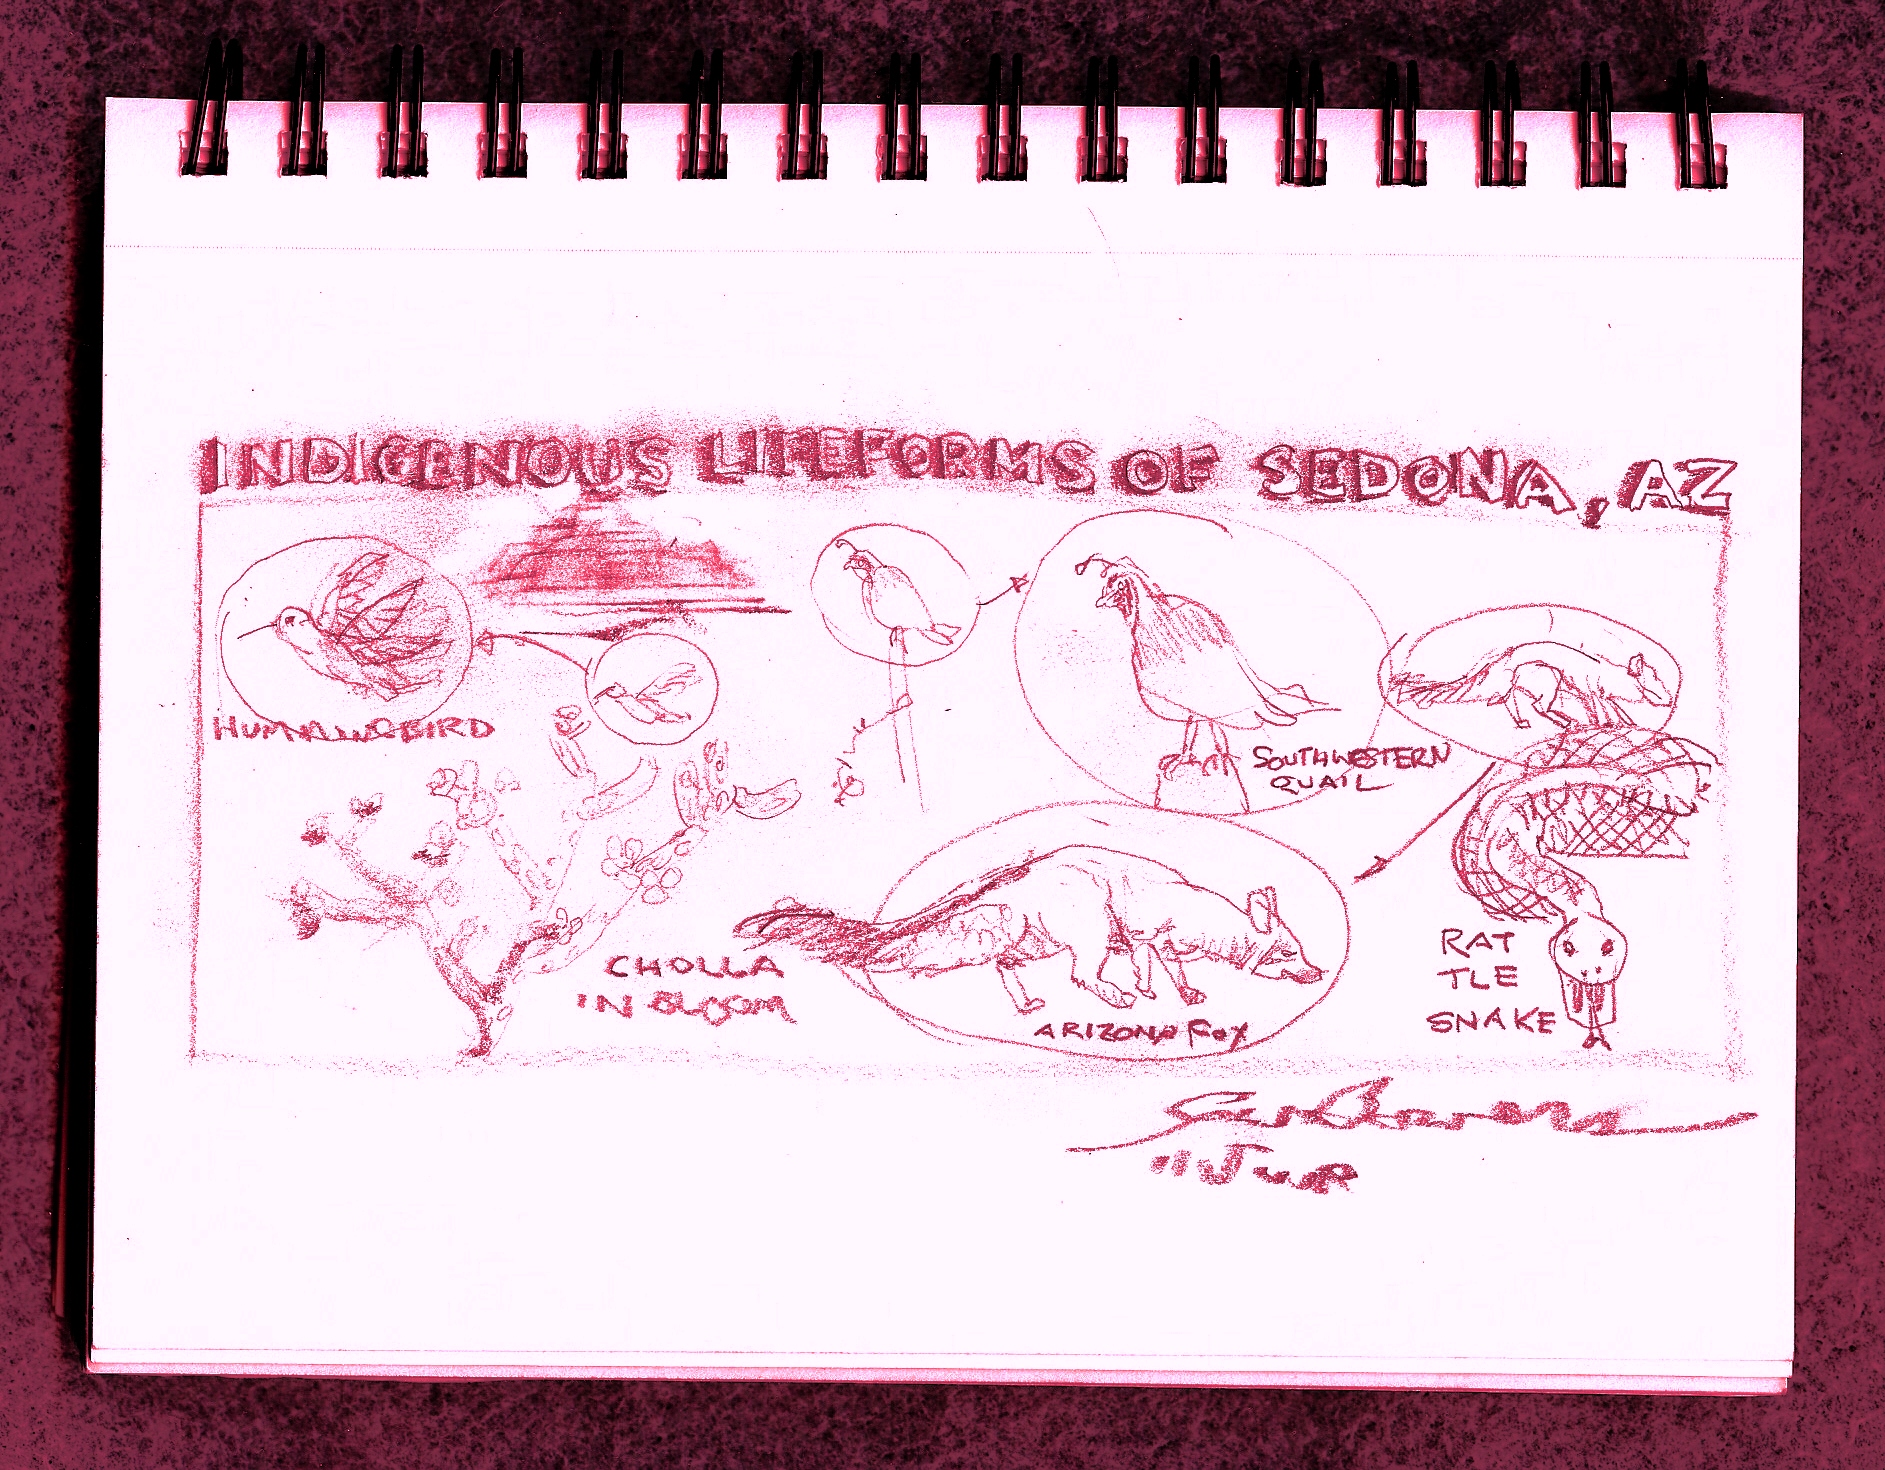 INDIGENOUS LIFEFORMS OF SEDONA, AZ
HUMMINGBIRD
SOUTHWESTERN
QUAIL
CHOLLA
IN BLOOM
ARIZONA FOX
RAT
TLE
SNAKE